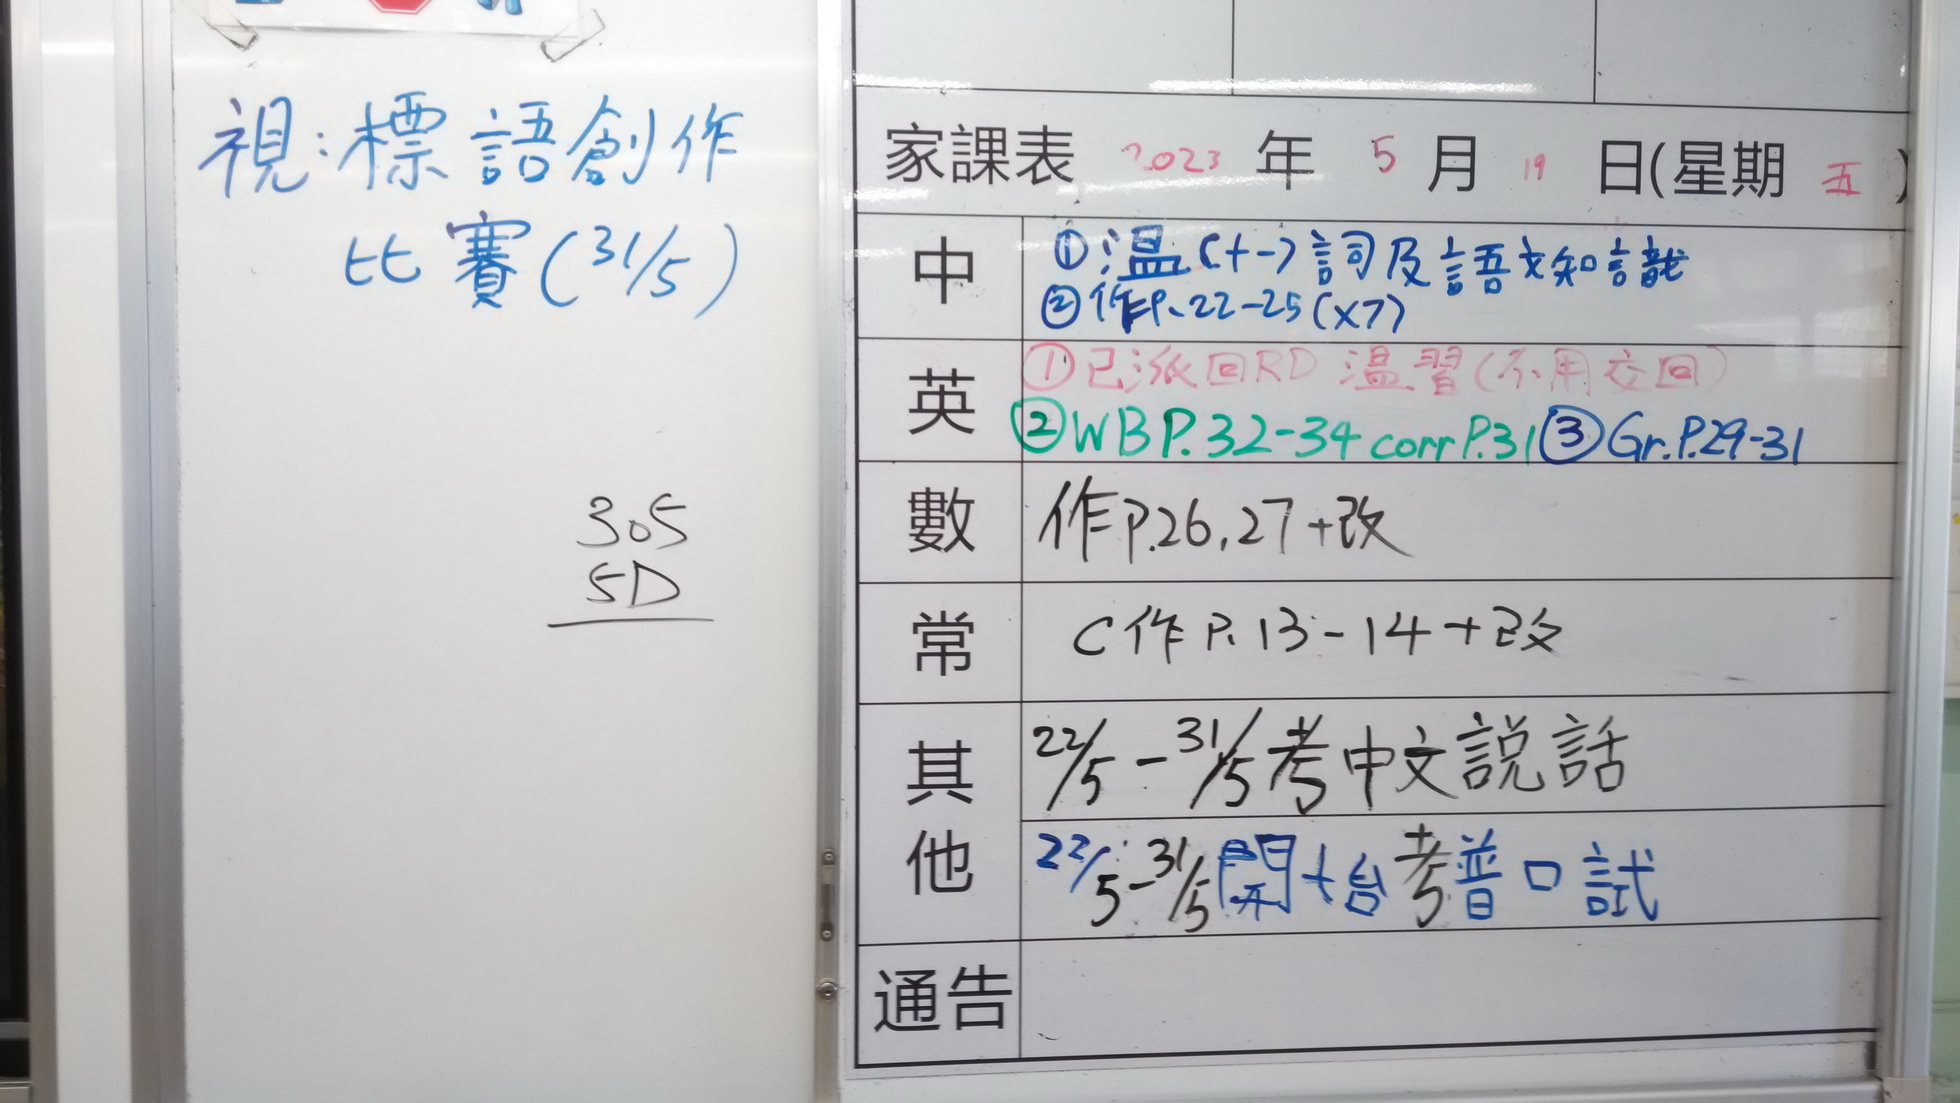 視：標語創作
比賽(31/5)
305
5D
家課表 2023 年 5 月 19 日(星期 五 )
中
①溫(十一)詞及語文知識
②作P.22-25(x7)
英
①已派回RD 溫習(不用交回)
②WB P.32-34 corr P.31 ③Gr.P.29-31
數
作P.26,27+改
常
C作P.13-14+改
其他
22/5-31/5考中文説話
22/5-31/5開十台考普口試
通告